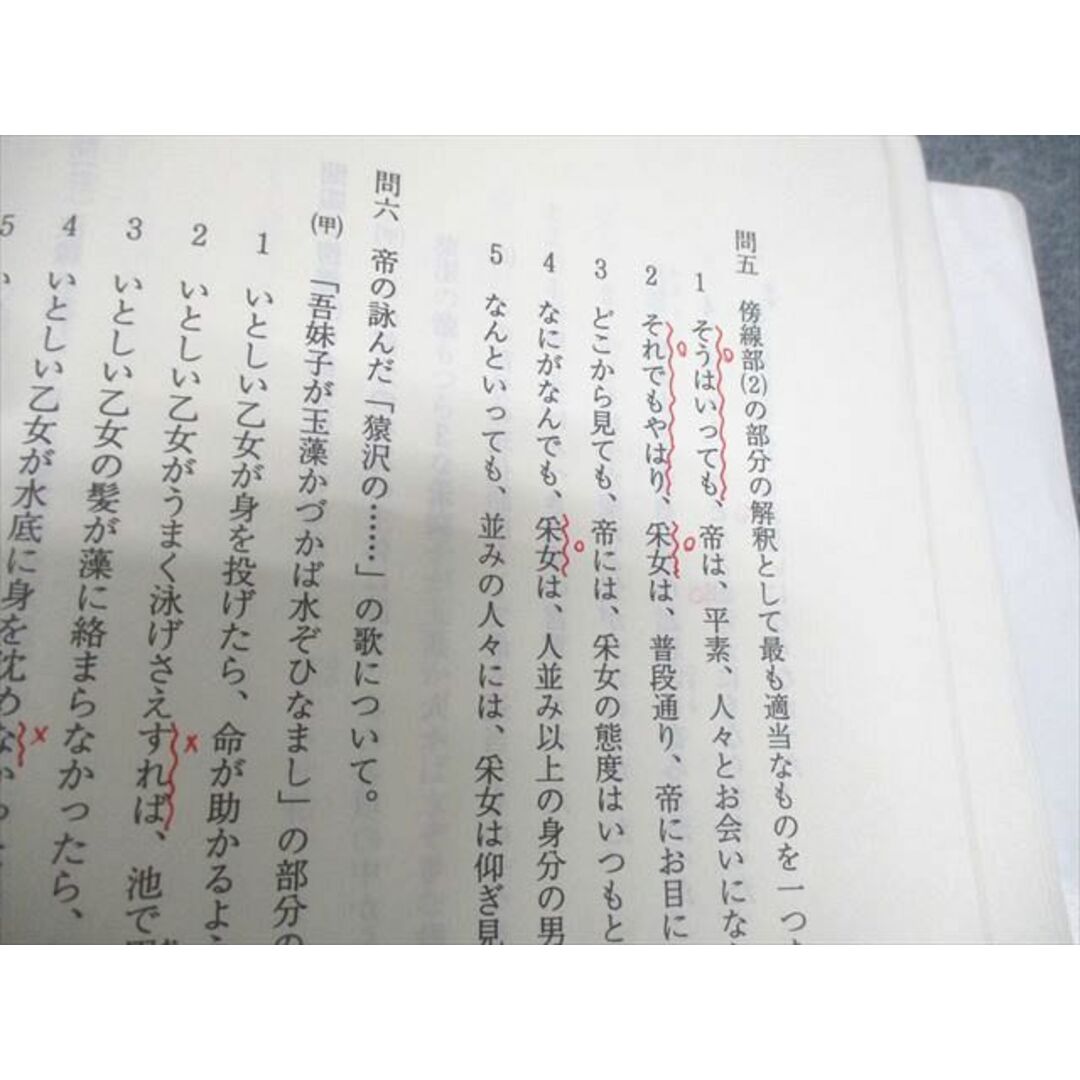 問五 傍線部(2)の部分の解釈として最も適当なものを一つ
1 そうはいっても、帝は、平素、人々とお会いにな
2 それでもやはり、采女は、普段通り、帝にお目に
3 どこから見ても、帝には、采女の態度はいつもと
4 なにがなんでも、采女は、人並み以上の身分の男
5 なんといっても、並みの人々には、采女は仰ぎ見
問六 帝の詠んだ「猿沢の……」の歌について。
(甲) 「吾妹子が玉藻かづかば水ぞひなまし」の部分の
1 いとしい乙女が身を投げたら、命が助かるよ
2 いとしい乙女がうまく泳げさえすれば、池で
3 いとしい乙女の髪が藻に絡まらなかったら、
4 いとしい乙女が水底に身を沈めなかった
5 い